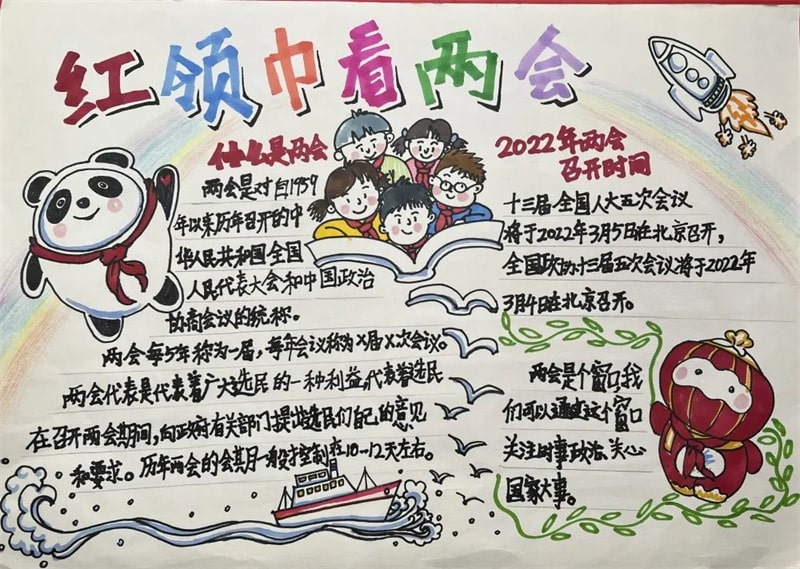 红领巾看两会
什么是两会
两会是对自1959
年以来历年召开的中
华人民共和国全国
人民代表大会和中国政治
协商会议的统称。
两会每5年称为一届，每年会议称为X届X次会议。
两会代表是代表着广大选民的一种利益，代表着选民
在召开两会期间，向政府有关部门提出选民们自己的意见
和要求。历年两会的会期一般控制在10-12天左右。
2022年两会
召开时间
十三届全国人大五次会议
将于2022年3月5日在北京召开，
全国政协十三届五次会议将于2022年
3月4日在北京召开。
两会是个窗口，我
们可以通过这个窗口
关注时事政治、关心
国家大事。